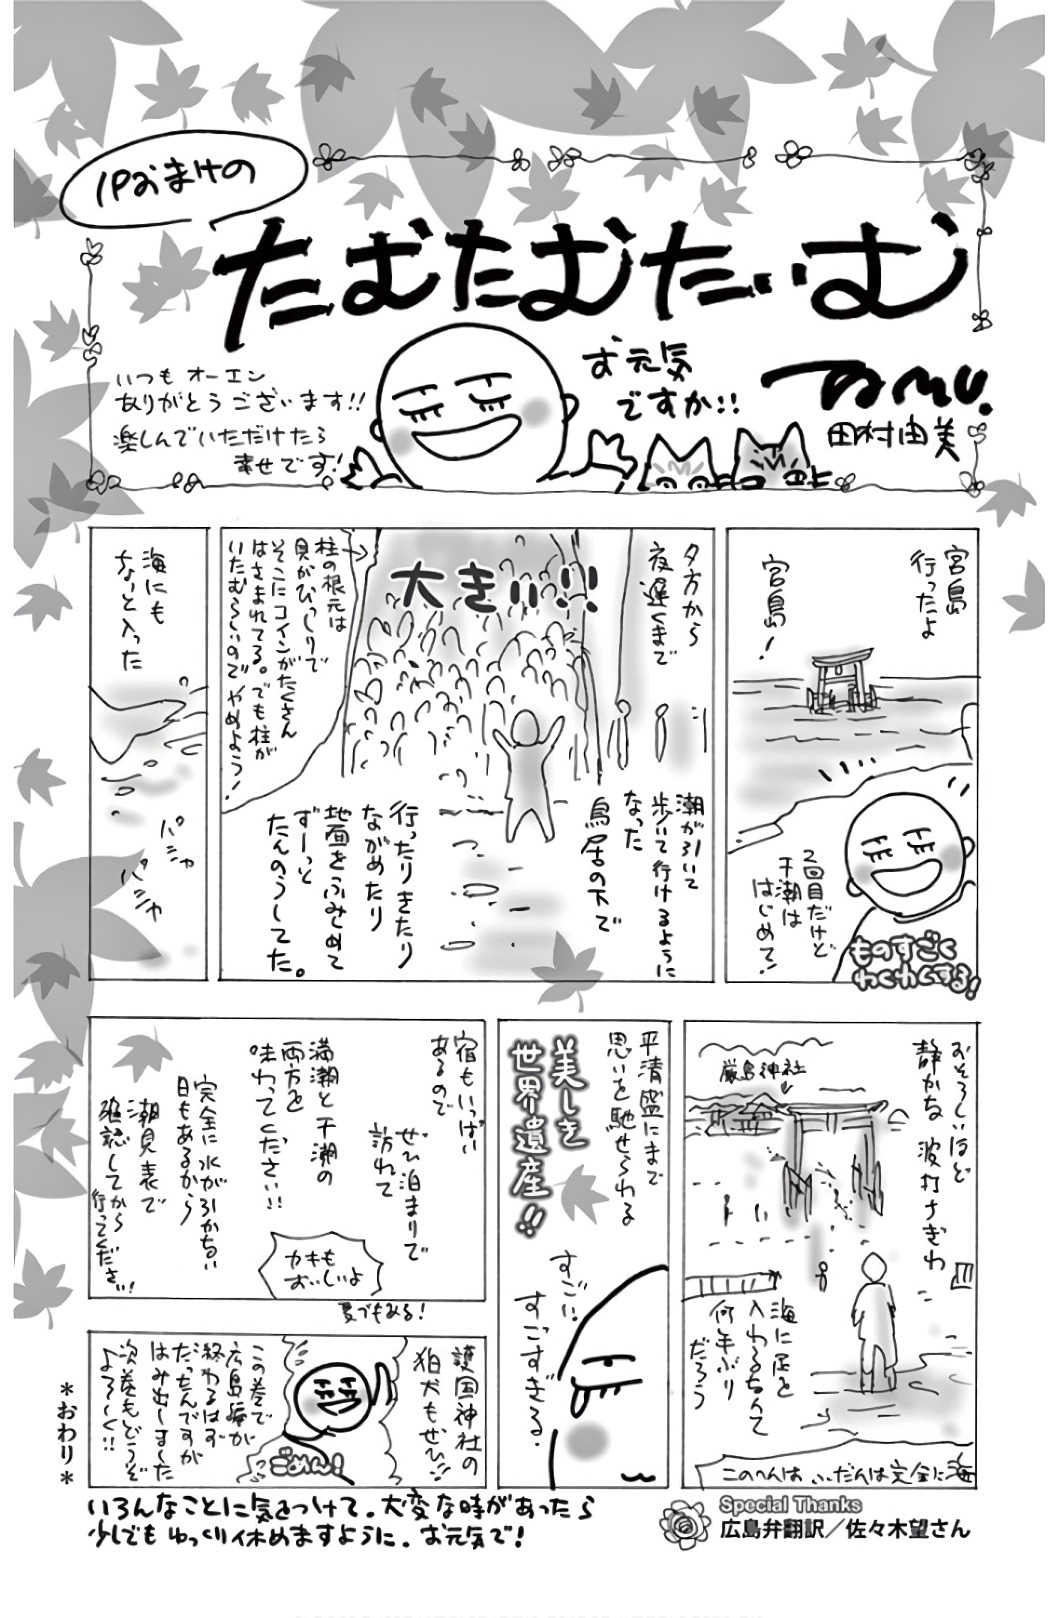 1Pおまけの
たむたむたいむ
いつもオーエン
ありがとうございます!!
楽しんでいただけたら
幸せです!
お元気
ですか!!
田村由美
宮島
行ったよ
宮島!
2回目だけど
干潮は
はじめて!
ものすごく
わくわくする!
夕方から
夜遅くまで
潮が引いて
歩いて行けるように
なった
鳥居の下で
大きい!!
行ったりきたり
ながめたり
地面をふみしめて
ずーっと
たんのうしてた。
柱の根元は
貝がびっしりで
そこにコインがたくさん
はさまれてる。でも柱が
いたむらしいのでやめよう!
海にも
なーと入った
パシャ
パシャ
おそろしいほど
静かな波打ちぎわ
厳島神社
海に足を
入れるなんて
何年ぶり
だろう
このへんは ふだんは完全に海
平清盛にまで
思いを馳せられる
美しき
世界遺産!!
すごい
すごすぎる.
宿もいっぱい
あるので
ぜひ泊まりで
訪れて
満潮と干潮の
両方を
味わってください!!
完全に水が引かない
日もあるから
潮見表で
確認してから
行ってください!
カキも
おいしいよ
夏でもある!
護国神社の
狛犬もぜひ!!
この巻で
広島編が
終わるはず
だったんですが
はみ出しました
次巻もどうぞ
よろしく!!
ごめん!
*おわり*
いろんなことに気をつけて。大変な時があったら
少しでもゆっくり休めますように。お元気で!
Special Thanks
広島弁翻訳/佐々木望さん